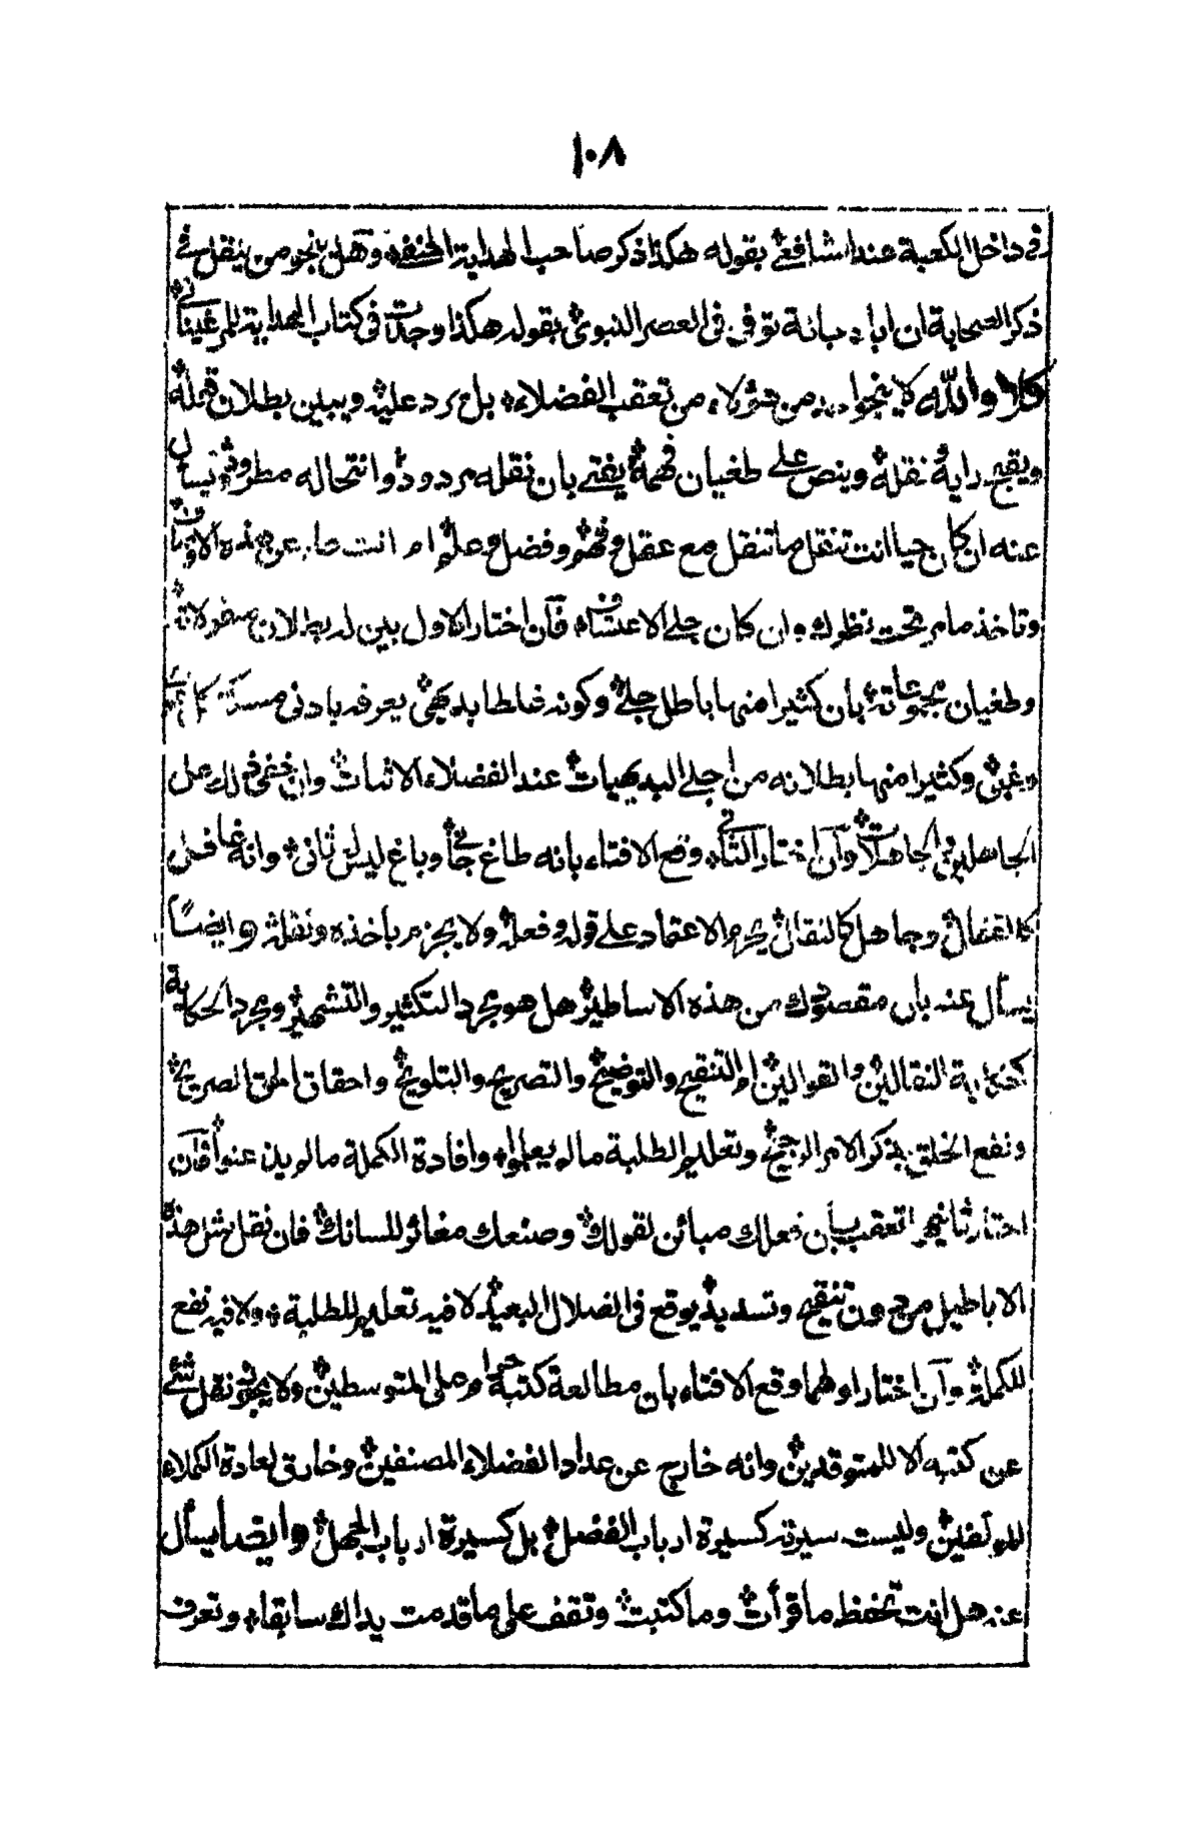 ١٠٨
في داخل الكعبة عند الشافعي بقوله هكذا ذكر صاحب الهداية الحنفي وهل ينجو من ينقل في
ذكر الصحابة ان ابا توفي في العصر النبوي بقوله هكذا وجدت في كتاب الهداية للمرغيناني
كلا والله لا ينجو من هؤلاء من تعقب الفضلاء بل يرد عليه ويبين بطلان
ويقبح رأيه نقله وينص على طغيان فهمه يفتى بان نقله مردود وانتحاله مطرود يسأل
عنه ان كان حيا انت تنقل ما تنقل مع عقل وفهم وفضل وعلم ام انت عن هذه
وتاخذ ما مر تحت نظرك وان كان فان اختار الاول بين له بطلان
وطغيان مجموعاته بان كثيرا منها باطل جلي وكونه غلطا بديهي يعرفه بادنى مسكة كل
وغبي وكثيرا منها بطلانه من اجلى البديهيات عند الفضلاء الاثبات وان خفي ذلك على
الجاهلين الجاهلات وان اختار الثاني وقع الافتاء بانه طاغ وباغ ليس له ثاني وانه غافل
كالقفال وجاهل كالنقال يحرم الاعتماد على قوله وفعله ولا يجزم باخذه ونقله وايضا
يسأل عنه بان مقصودك من هذه الاساطير هل هو مجرد التكثير والتشهير ومجرد الحكاية
النقالين والقوالين ام التنقيح والتوضيح والتصريح والتلويح واحقاق الحق الصريح
ونفع الخلق بذكر الامر الرجيح وتعليم الطلبة ما لم يعلموا وافادة الكملة ما لم يذعنوا فان
اختار ثانيهما تعقب بان فعلك مبائن لقولك وصنعك مغائر للسانك فان نقل مثل هذه
الاباطيل من دون تنقيح وتسديد يوقع في الضلال البعيد لا فيه تعليم للطلبة ولا فيه نفع
للكملة وان اختار اولهما وقع الافتاء بان مطالعة كتبه حرام على المتوسطين ولا يجوز نقل شئ
عن كتبه الا للمتوقدين وانه خارج عن عداد الفضلاء المصنفين وخارق لعادة الكملاء
المؤلفين وليست سيرته كسيرة ارباب الفضل بل كسيرة ارباب الجهل وايضا يسأل
عنه هل انت تحفظ ما قرأت وما كتبت وتقف على ما قدمت يداك سابقا وتعرف